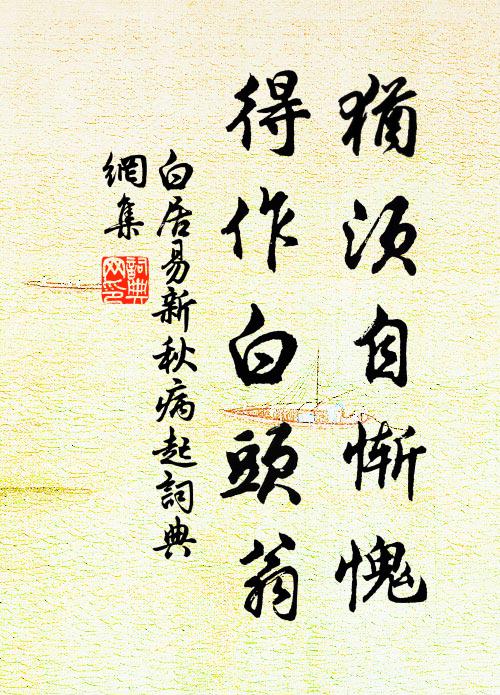 猶須自慚愧
得作白頭翁
白居易新秋病起詞典
網集
詞典網